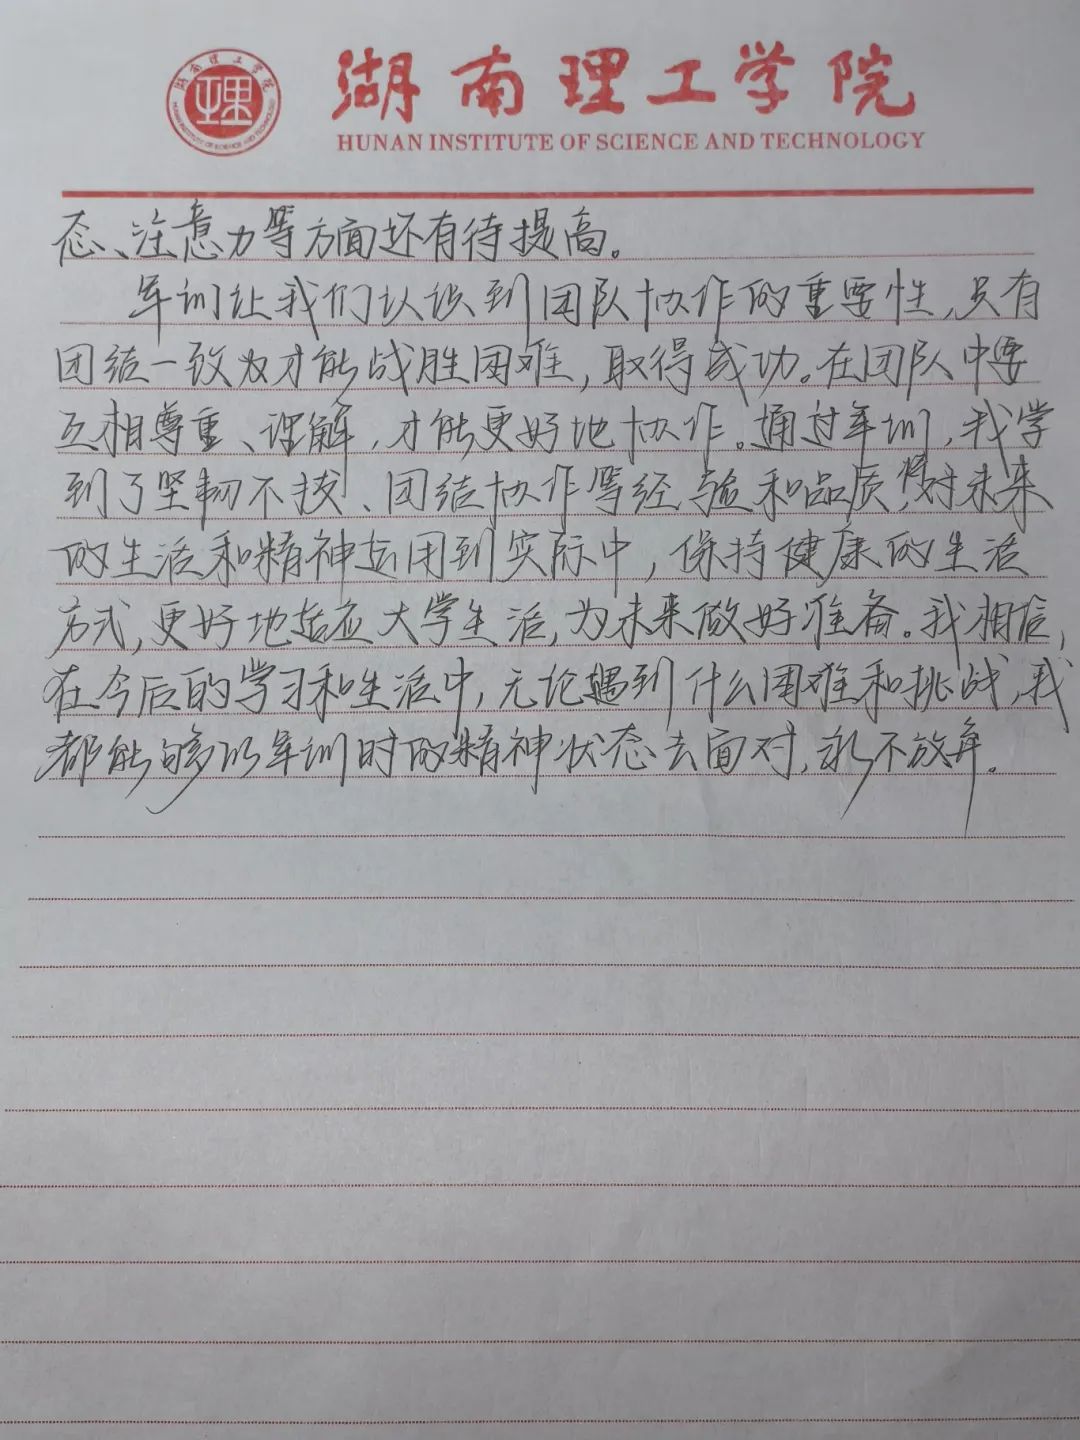 湖南理工学院
HUNAN INSTITUTE OF SCIENCE AND TECHNOLOGY
态、注意力等方面还有待提高。
军训让我们认识到团队协作的重要性,只有
团结一致才能战胜困难,取得成功。在团队中要
互相尊重、理解,才能更好地协作。通过军训,我学
到了坚韧不拔、团结协作等经验和品质,将对未来
的生活和精神运用到实际中,保持健康的生活
方式,更好地适应大学生活,为未来做好准备。我相信,
在今后的学习和生活中,无论遇到什么困难和挑战,我
都能够以军训时的精神状态去面对,永不放弃。